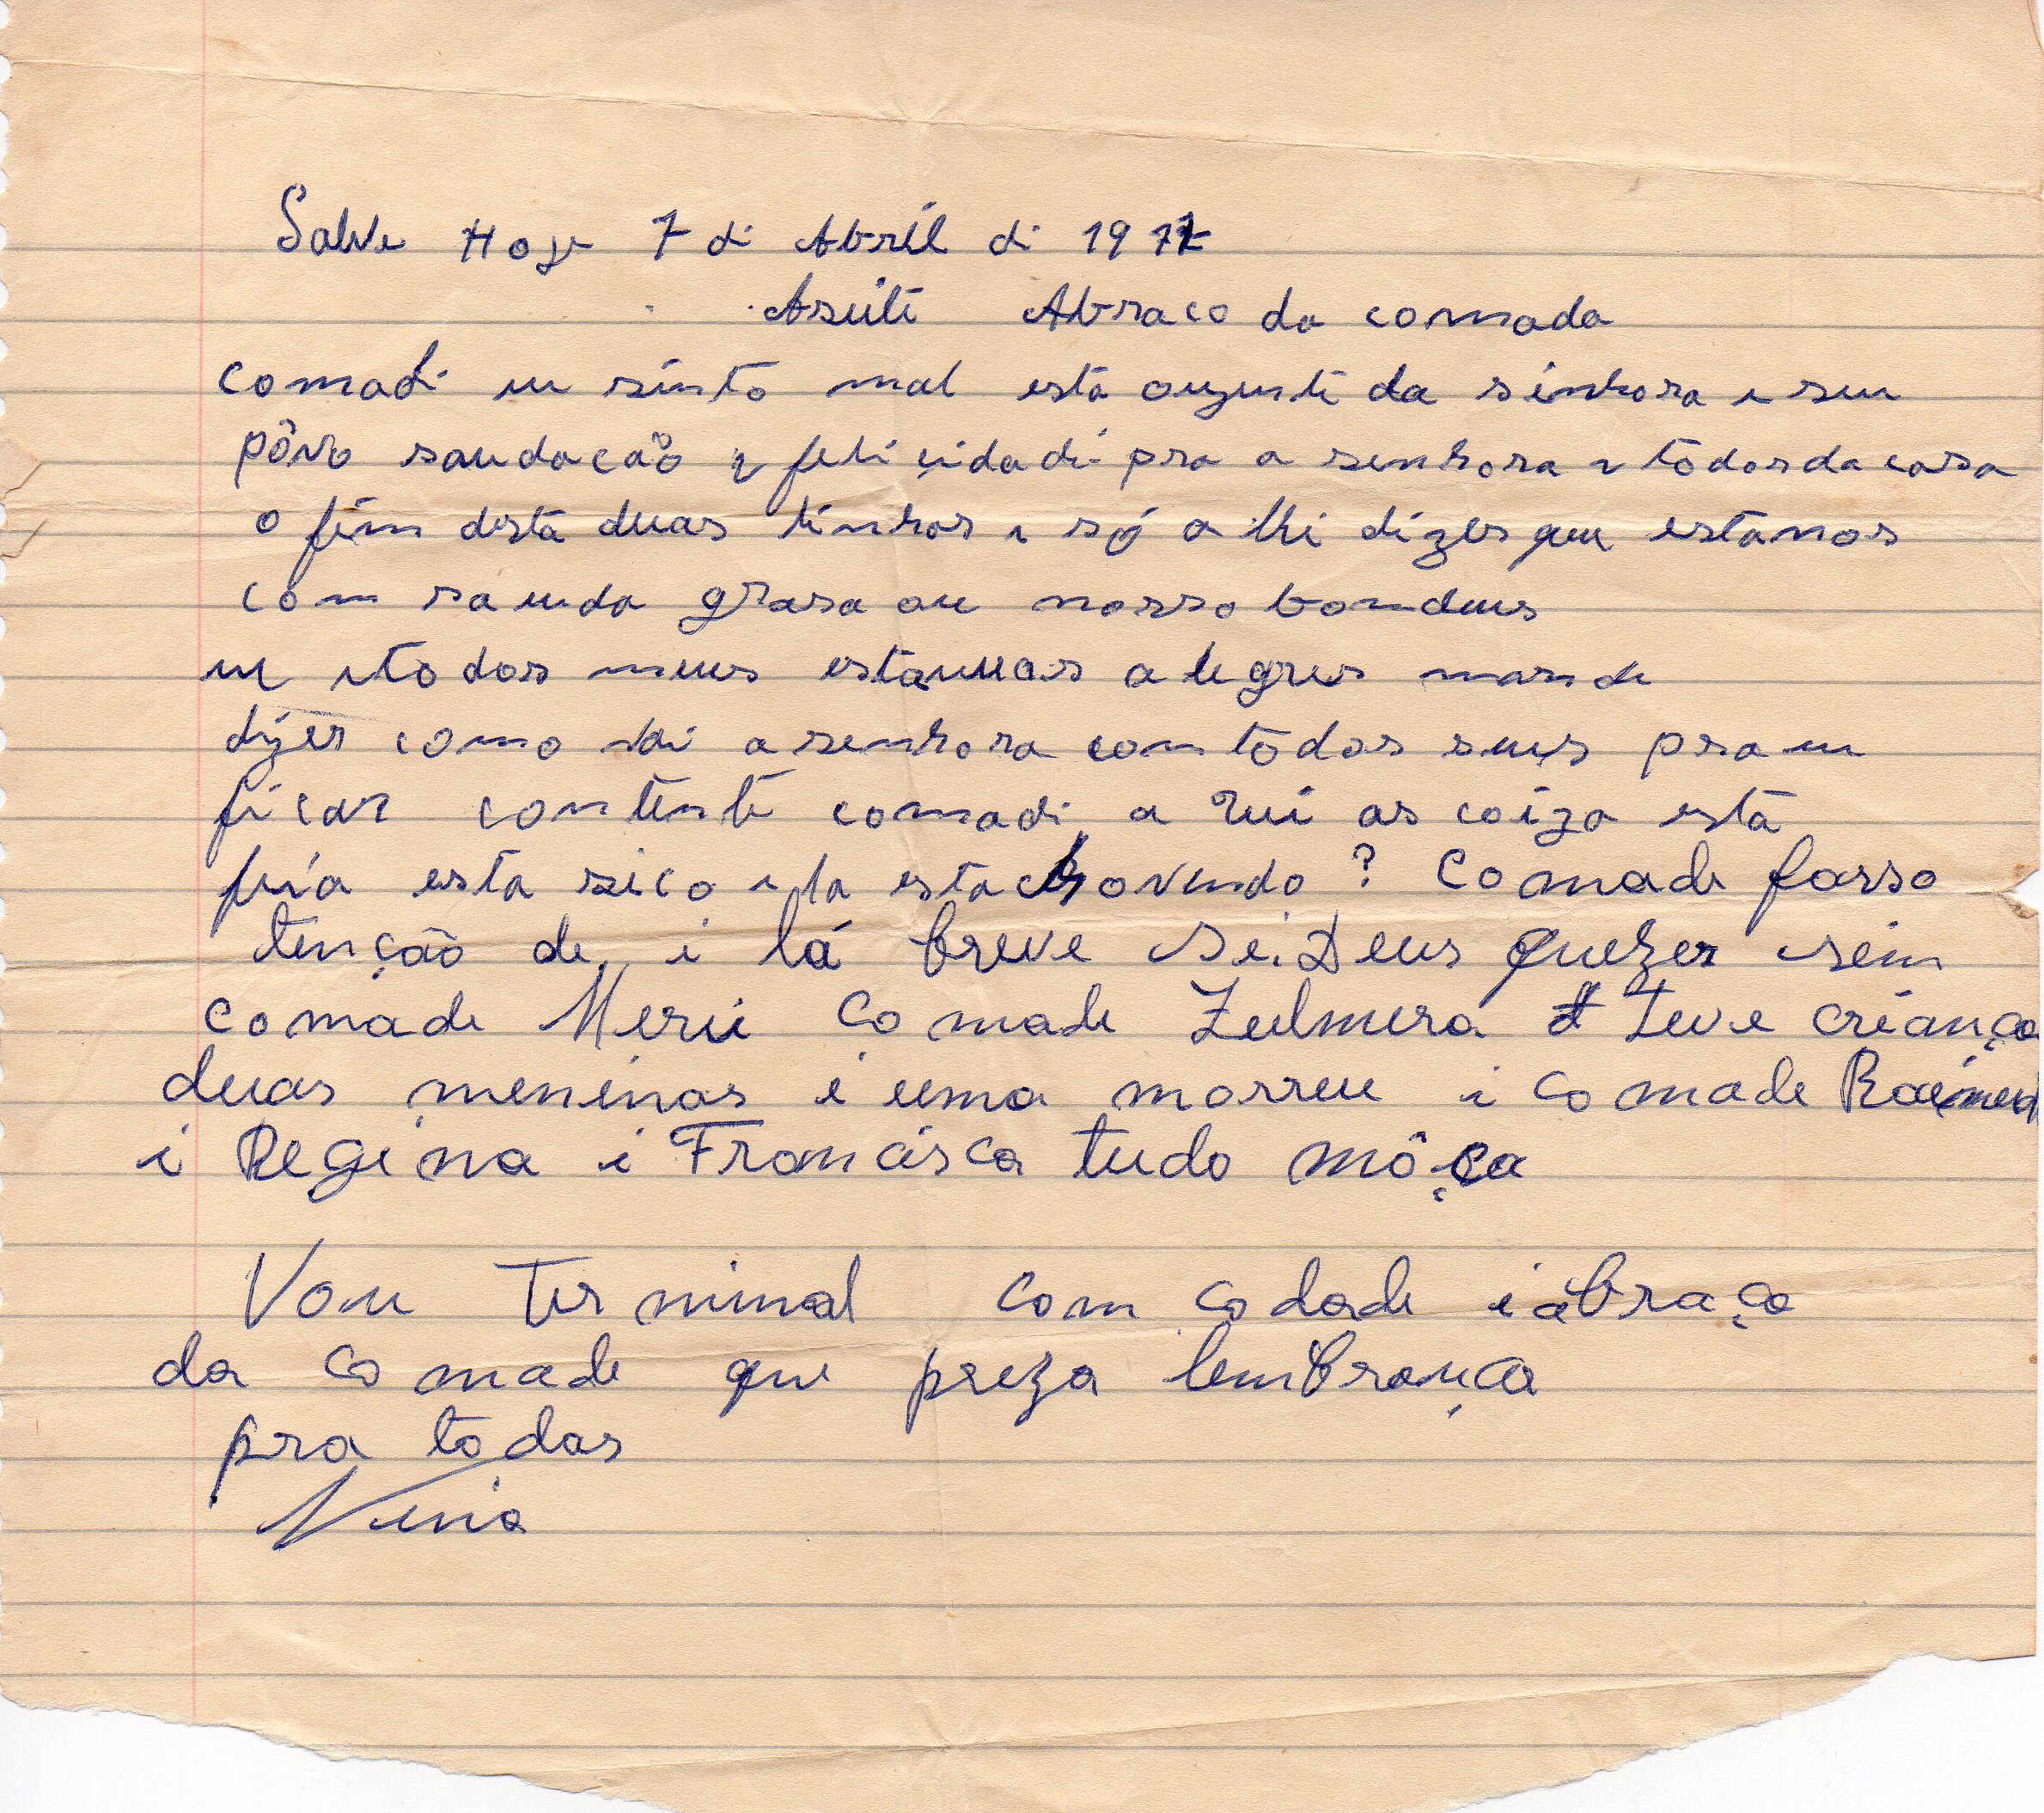 Salve Hoje 7 di Abril di 1977
Aseiti Abraco da comada
comadi eu sinto mal está auzenti da sinhora e seu
pôvo saudacaõ e felicidadi pra a senhora e todos da casa
o fim desta duas linhas e só a lhi dizer que estanos
com sauda grasa au nosso bom deus
eu i todos meus estamos alegres mande
dizer como vai a senhora com todos seus pra eu
ficar contenti comadi a qui as coiza está
fria esta sico e la esta chovendo ? Comade fasso
tenção de i lá breve se Deus quezer sim
comade Comade Zulmera teve criança
duas meninas i uma morreu i comade
i Regina i Francisca tudo môça
Vou Terminal com codade i abraço
da comade que preza lembrança
pra todas